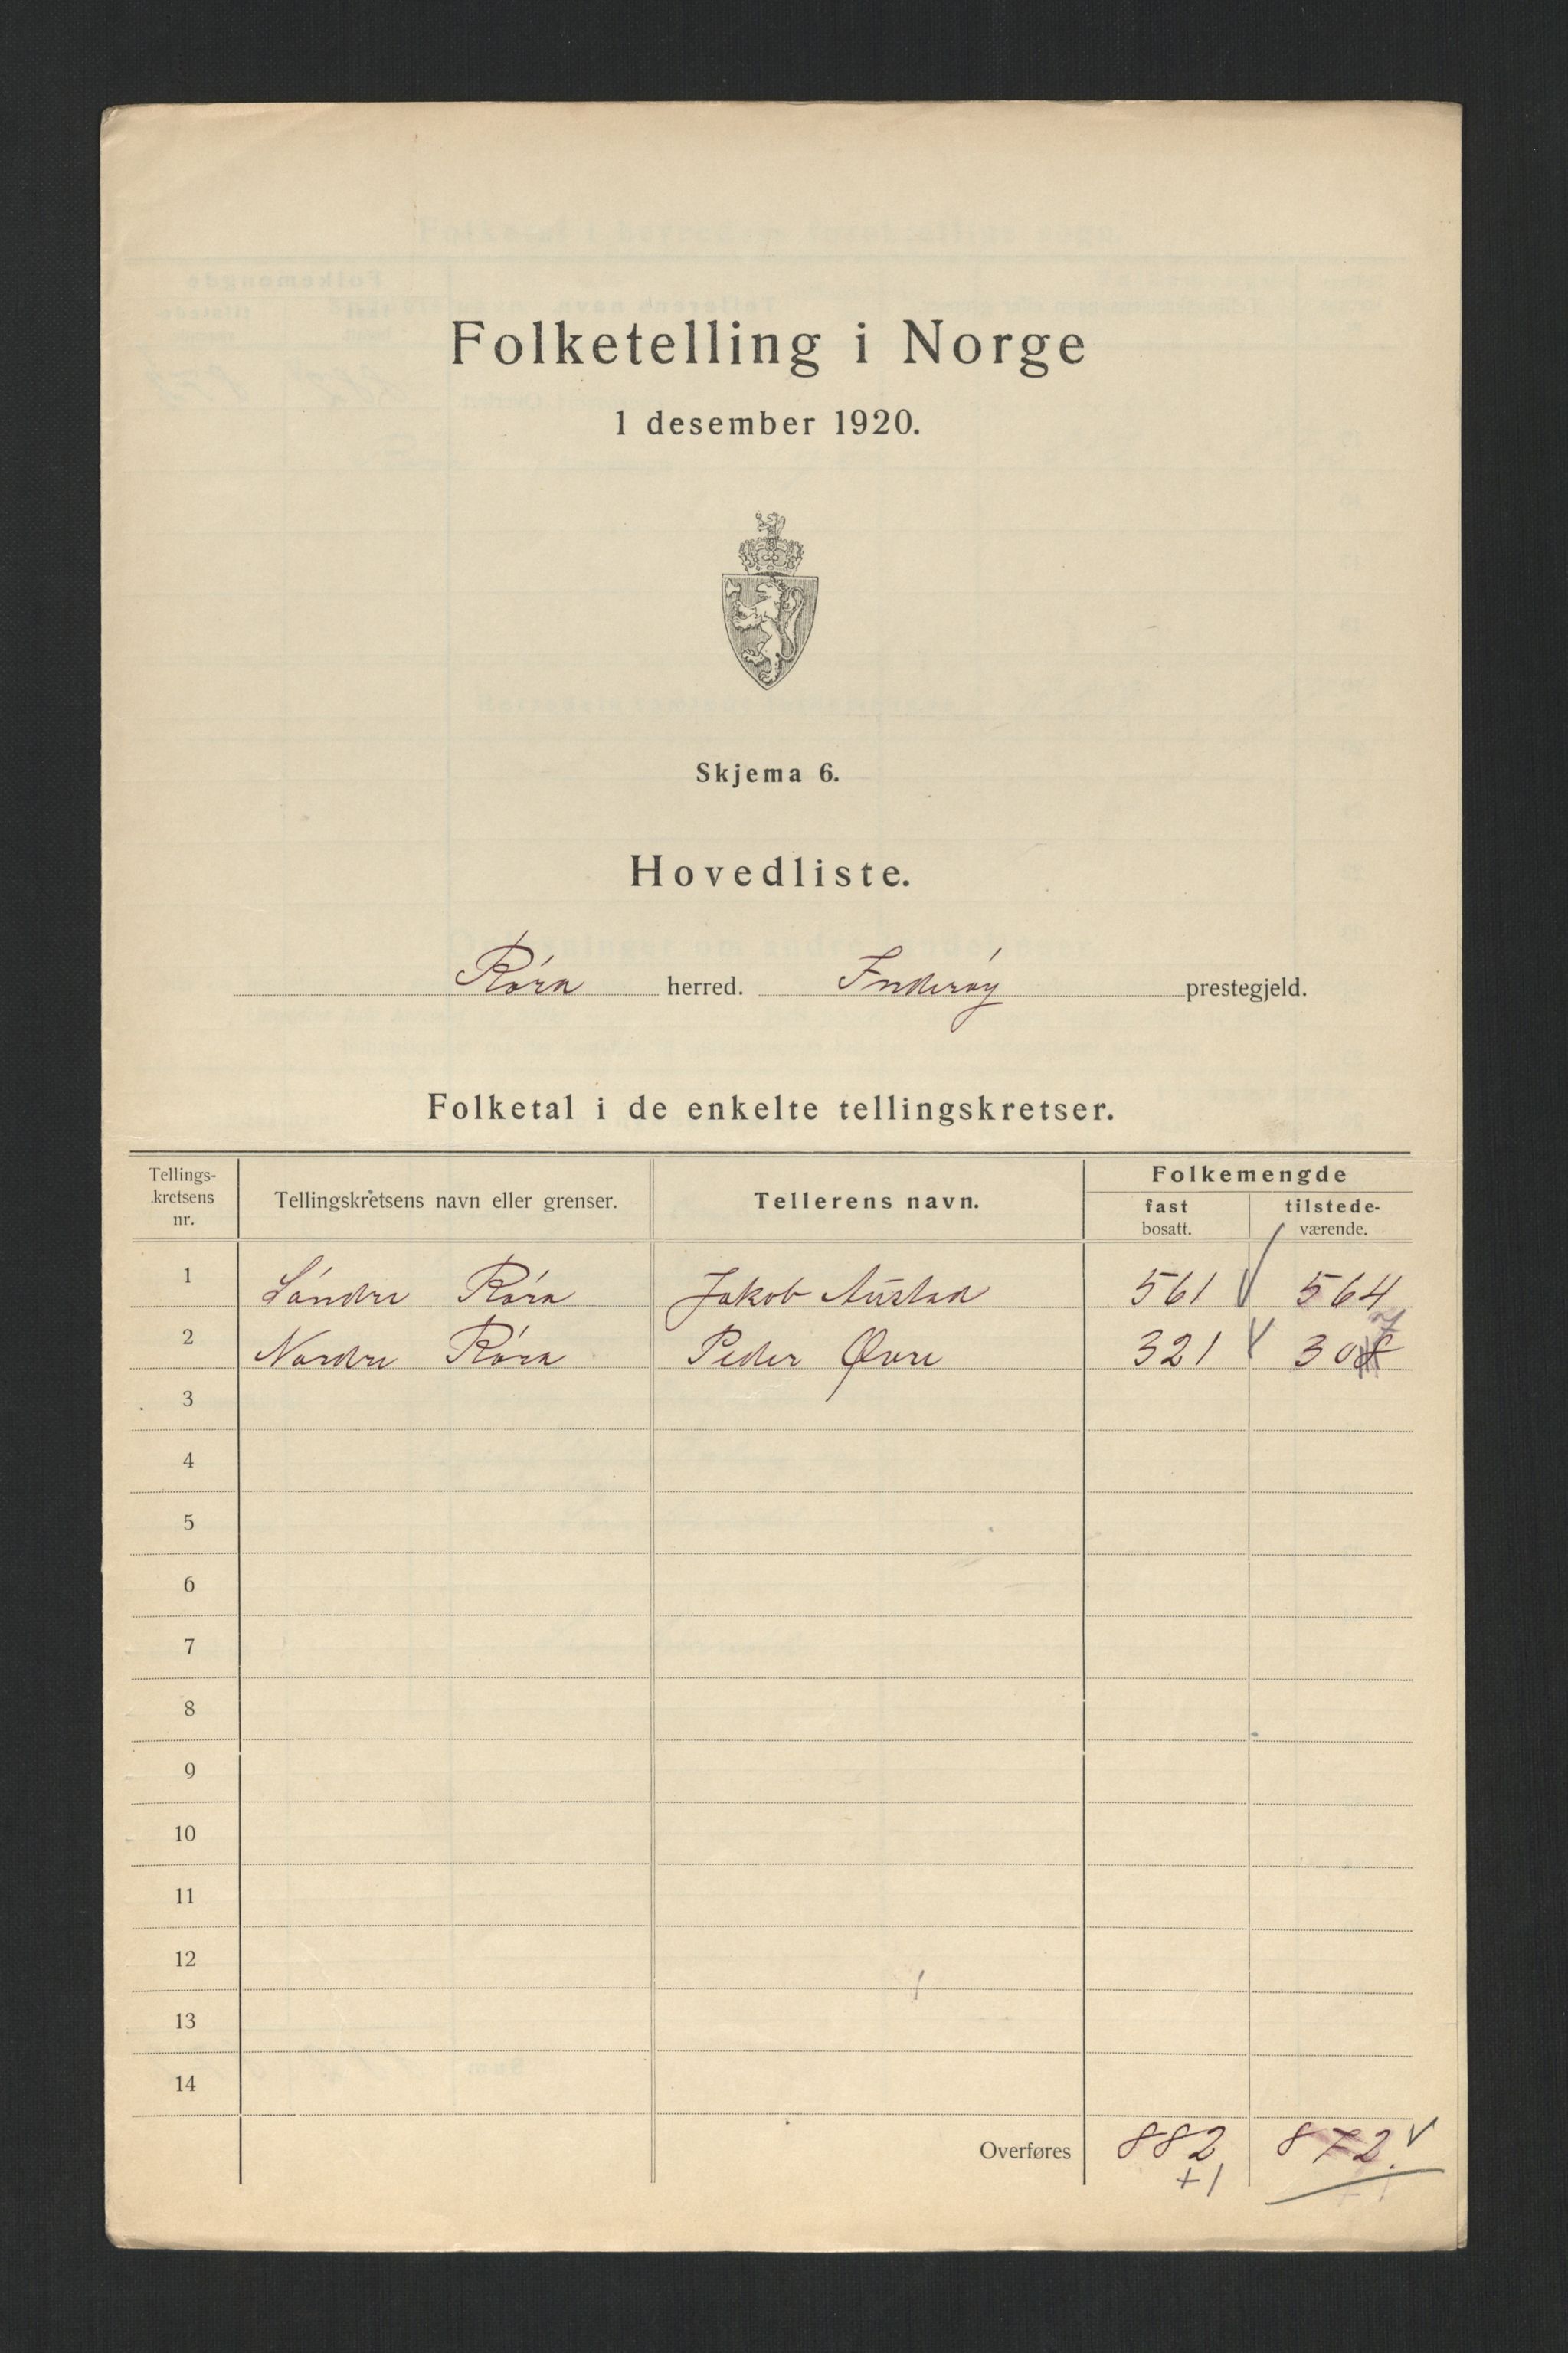 Folketelling i Norge
1 desember 1920.
Skjema 6.
Hovedliste.
Róra herred. Inderóy prestegjeld.
Folketal i de enkelte tellingskretser.
Tellings-
kretsens
nr.
Tellingskretsens navn eller grenser.
Tellerens navn.
Folkemengde
fast
bosatt.
tilstede-
værende.
1 Sóndre Róra Jakob Austad 561 564
2 Nordre Róra Peder Øvre 321 307
3
4
5
6
7
8
9
10
11
12
13
14
Overføres 882 872
+1